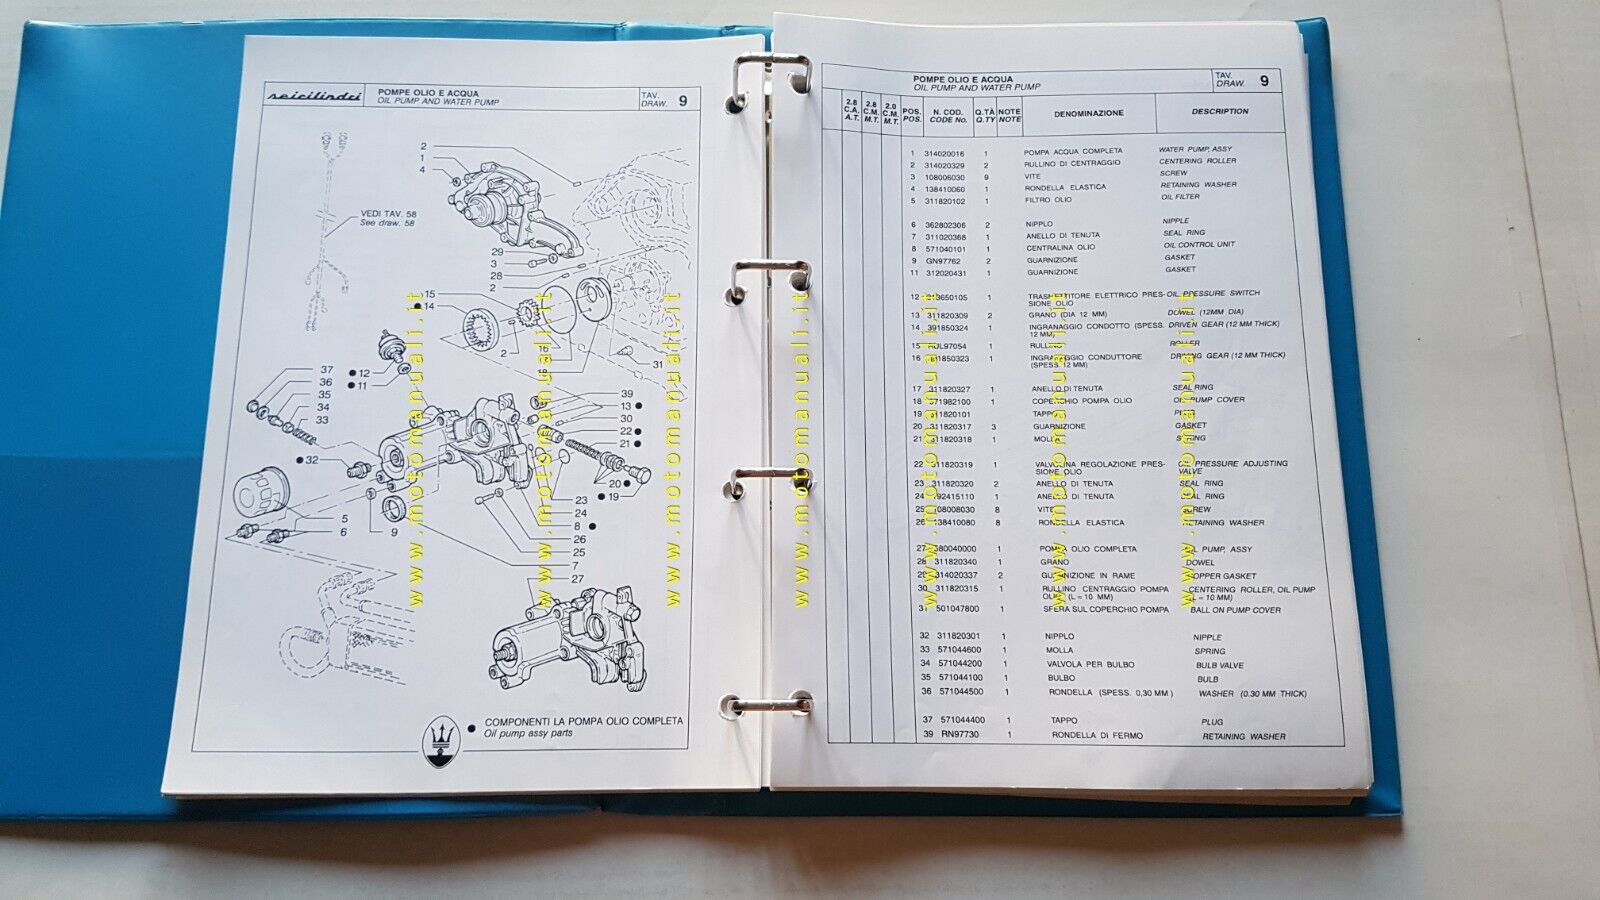 seicilindri
POMPE OLIO E ACQUA
OIL PUMP AND WATER PUMP
TAV.
DRAW. 9
VEDI TAV. 58
See draw. 58
2
1
4
29
3
28
2
15
14
2
16
18
31
12
11
37
36
35
34
33
32
39
13
30
22
21
20
19
23
24
8
26
25
7
27
5
6
9
COMPONENTI LA POMPA OLIO COMPLETA
Oil pump assy parts
POMPE OLIO E ACQUA
OIL PUMP AND WATER PUMP
TAV.
DRAW. 9
2.8 C.A. A.T. 2.8 C.M. M.T. 2.0 C.M. M.T. POS. POS. N. COD. CODE No. Q.TÀ Q.TY NOTE NOTE DENOMINAZIONE DESCRIPTION
1 314020016 1 POMPA ACQUA COMPLETA WATER PUMP, ASSY
2 314020329 2 RULLINO DI CENTRAGGIO CENTERING ROLLER
3 108006030 9 VITE SCREW
4 138410060 1 RONDELLA ELASTICA RETAINING WASHER
5 311820102 1 FILTRO OLIO OIL FILTER
6 362802306 2 NIPPLO NIPPLE
7 311020368 1 ANELLO DI TENUTA SEAL RING
8 571040101 1 CENTRALINA OLIO OIL CONTROL UNIT
9 GN97762 2 GUARNIZIONE GASKET
11 312020431 1 GUARNIZIONE GASKET
12 1 ELETTRICO PRES- OIL PRESSURE SWITCH
SIONE OLIO
13 311820309 2 GRANO (DIA 12 MM) DOWEL (12MM DIA)
14 391850324 1 INGRANAGGIO CONDOTTO (SPESS. DRIVEN GEAR (12 MM THICK)
12 MM)
15 RUL97054 1 RULLINO ROLLER
16 1 INGRANAGGIO CONDUTTORE DRIVING GEAR (12 MM THICK)
(SPESS. 12 MM)
17 311820327 1 ANELLO DI TENUTA SEAL RING
18 571982100 1 COPERCHIO POMPA OLIO OIL PUMP COVER
19 311820101 1 TAPPO PLUG
20 311820317 3 GUARNIZIONE GASKET
21 311820318 1 MOLLA SPRING
22 311820319 1 VALVOLINA REGOLAZIONE PRES- OIL PRESSURE ADJUSTING
SIONE OLIO VALVE
23 311820320 2 ANELLO DI TENUTA SEAL RING
24 192415110 1 ANELLO DI TENUTA SEAL RING
25 108008030 8 VITE SCREW
26 138410080 8 RONDELLA ELASTICA RETAINING WASHER
27 380040000 1 POMPA OLIO COMPLETA OIL PUMP, ASSY
28 311820340 1 GRANO DOWEL
29 314020337 2 GUARNIZIONE IN RAME COPPER GASKET
30 311820315 1 RULLINO CENTRAGGIO POMPA CENTERING ROLLER, OIL PUMP
OLIO (L = 10 MM) (L = 10 MM)
31 501047800 1 SFERA SUL COPERCHIO POMPA BALL ON PUMP COVER
32 311820301 1 NIPPLO NIPPLE
33 571044600 1 MOLLA SPRING
34 571044200 1 VALVOLA PER BULBO BULB VALVE
35 571044100 1 BULBO BULB
36 571044500 1 RONDELLA (SPESS. 0,30 MM) WASHER (0.30 MM THICK)
37 571044400 1 TAPPO PLUG
39 RN97730 1 RONDELLA DI FERMO RETAINING WASHER
www.motomanuali.it
www.motomanuali.it
www.motomanuali.it
www.motomanuali.it
www.motomanuali.it
www.motomanuali.it
www.motomanuali.it